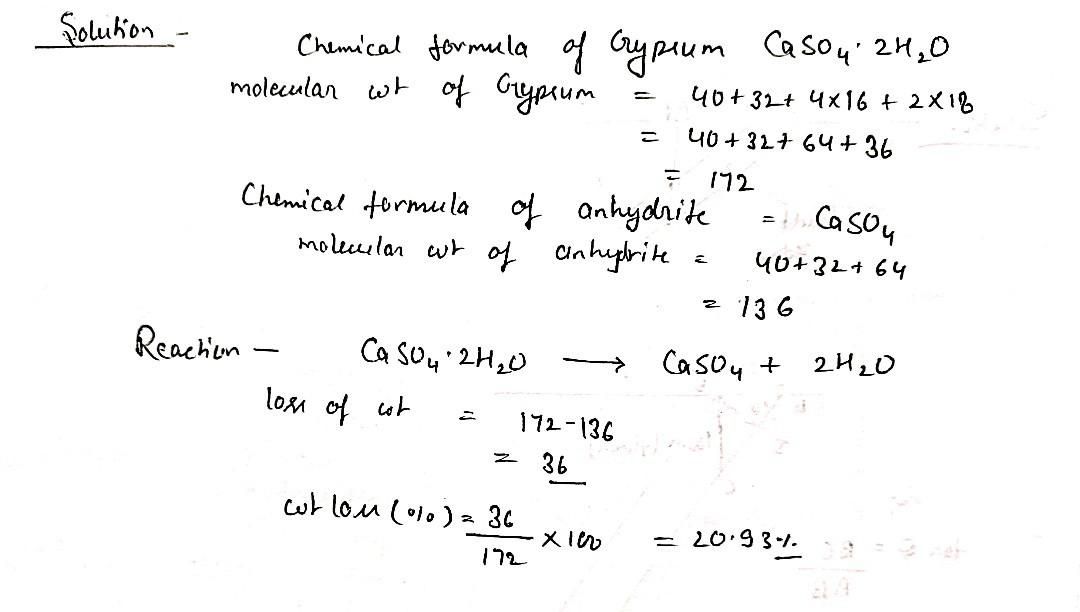 Solution -
Chemical formula of Gypsum CaSO₄·2H₂O
molecular wt of Gypsum = 40+32+4×16+2×18
= 40+32+64+36
= 172
Chemical formula of anhydrite = CaSO₄
molecular wt of anhydrite = 40+32+64
= 136
Reaction - CaSO₄·2H₂O → CaSO₄ + 2H₂O
loss of wt = 172-136
= 36
wt loss (%) = 36/172 ×100 = 20.93%